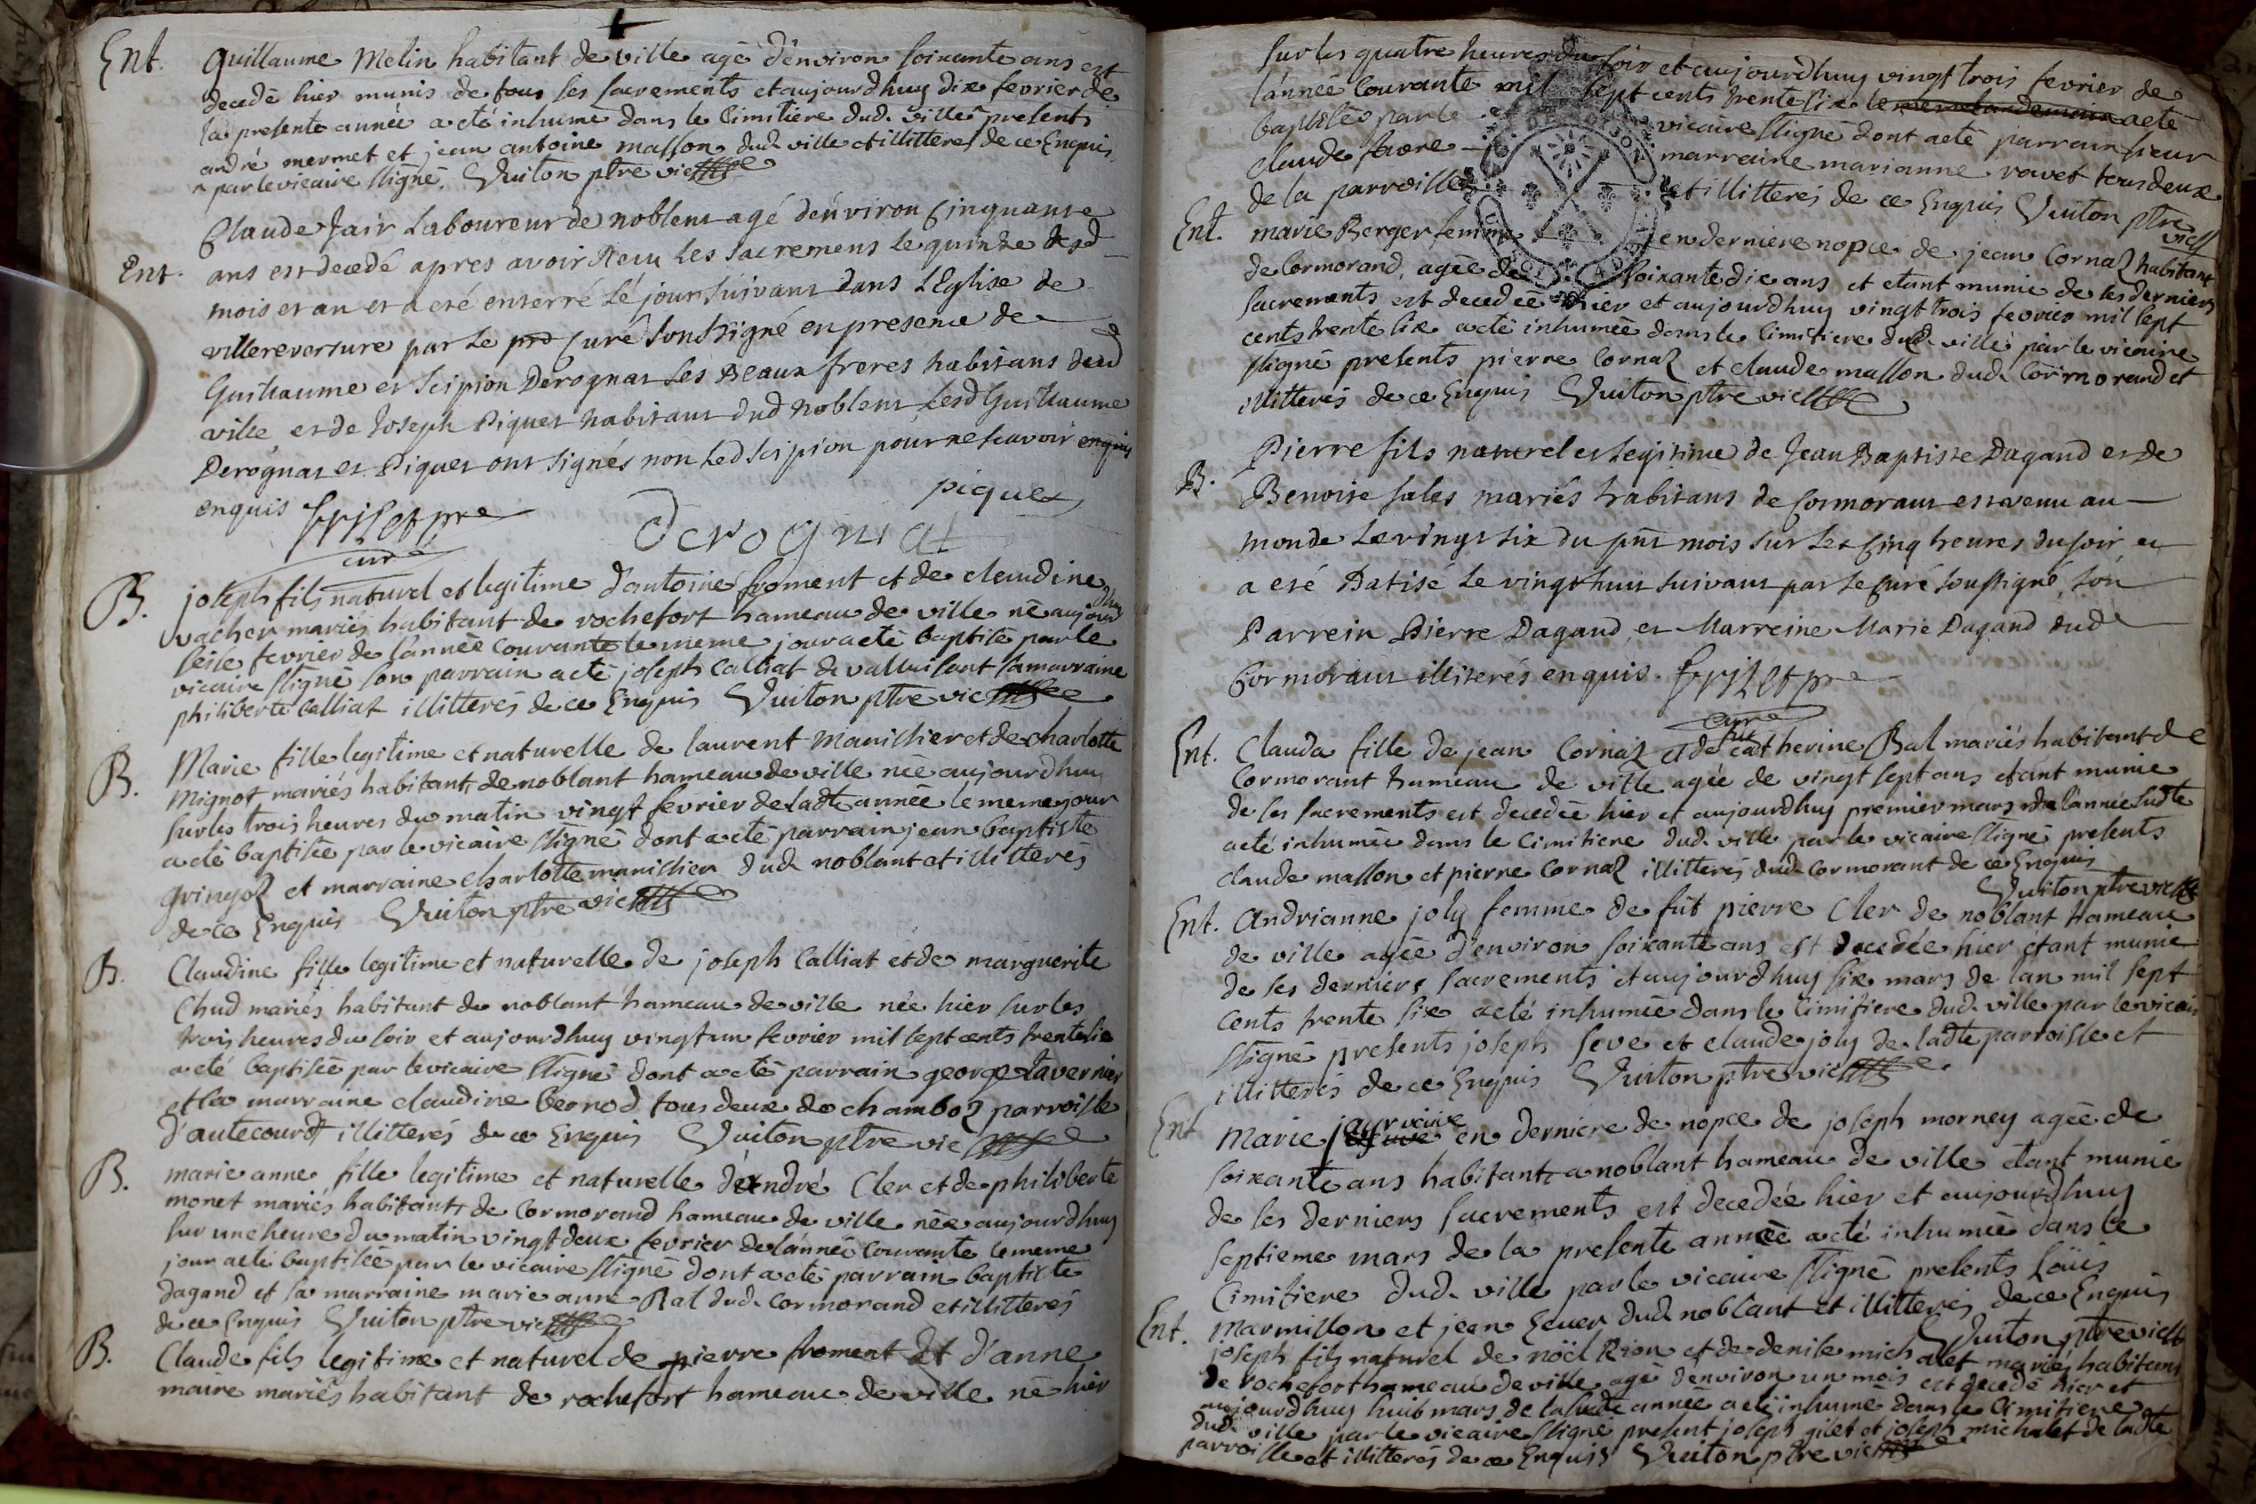 Ent. Guillaume Melin habitant de ville agé d'environ soixante ans est
decedé hier munis de tous ses sacrements et aujourdhuy dix fevrier de
la presente année a eté inhumé dans le cimitiere dud. ville presents
andré mermet et jean antoine masson dud. ville et illitteres de ce Enquis
par le vicaire ssigné. Vuiton ptre vic
Claude Jair Laboureur de noblens agé d'environ Cinquante
Ent. ans est decedé apres avoir Receu les sacremens le quinze desd
mois et an et a eté enterré le jour suivant dans l'Eglise de
villereversure par le Curé soussigné en presence de
Guillaume et Scipion Derognat les Beaux freres habitans dud
ville et de Joseph Piquet habitant dud noblens Lesd Guillaume
Derognat et Piquet ont signés non Led Scipion pour ne scavoir enquis
enquis piquet
Derognat
curé
B. joseph fils naturel et legitime d'antoine froment et de claudine
vacher mariés habitant de rochefort hameau de ville né aujourdhuy
seise fevrier de l'année courante le meme jour a eté baptisé par le
vicaire ssigné son parrain a eté joseph Calliat de valluisant sa marraine
philiberte Calliat illitterés de ce Enquis Vuiton ptre vic
B. Marie fille legitime et naturelle de laurent Manillier et de charlotte
Mignot mariés habitant de noblant hameau de ville née aujourdhuy
sur les trois heures du matin vingt fevrier de ladte année le meme jour
a eté baptisée par le vicaire ssigné dont a eté parrain jean baptiste
gringoz et marraine charlotte manillier dud noblant et illitterés
de ce Enquis Vuiton ptre vic
B. Claudine fille legitime et naturelle de joseph Calliat et de marguerite
Chud mariés habitant de noblant hameau de ville née hier sur les
trois heures du soir et aujourdhuy vingt un fevrier mil sept cents trente six
a eté baptisée par le vicaire ssigné dont a eté parrain george Tavernier
et la marraine claudine bernod tous deux de chamboz parroisse
d'autecourt illitterés de ce Enquis Vuiton ptre vic
B. marie anne fille legitime et naturelle d'andré Cler et de philiberte
monet mariés habitant de Cormorand hameau de ville née aujourdhuy
sur une heure du matin vingt deux fevrier de l'année courante le meme
jour a eté baptisée par le vicaire ssigné dont a eté parrain baptiste
dagand et sa marraine marie anne Bal dud. Cormorand et illitterés
de ce Enquis Vuiton ptre vic
B. Claude fils legitime et naturel de pierre froment et d'anne
maire mariés habitant de rochefort hameau de ville né hier
sur les quatre heures du soir et aujourdhuy vingt trois fevrier de
l'année courante mil sept cents trente six a eté
baptisé par le vicaire ssigné dont a eté parrain sieur
claude favre marraine marianne ravet tous deux
de la parroisse et illitterés de ce Enquis Vuiton ptre vic
Ent. marie Berger femme en derniere nopce de jean Cornaz habitant
de Cormorand, agée de soixante dix ans et etant munie de ses derniers
sacrements est decedée hier et aujourdhuy vingt trois fevrier mil sept
cents trente six a eté inhumée dans le cimitiere dud. ville par le vicaire
ssigné presents pierre Cornaz et claude masson dud. Cormorand et
illitterés de ce Enquis Vuiton ptre vic
Pierre fils naturel et legitime de Jean Baptiste Dagand et de
B. Benoite sales mariés habitans de Cormorant est venu au
monde le vingt six du pnt mois sur les Cinq heures du soir et
a eté Batisé le vingt huit suivant par le Curé soussigné, son
Parrein Pierre Dagand et Marreine Marie Dagand dud
Cormorant illiterés enquis.
curé
Ent. Clauda fille de jean Cornaz et de catherine Bal mariés habitant de
Cormorant hameau de ville agée de vingt sept ans etant munie
de ses sacrements est decedée hier et aujourdhuy premier mars de l'année sudte
a eté inhumée dans le cimitiere dud. ville par le vicaire ssigné presents
claude masson et pierre Cornaz illitterés dud. Cormorant de ce Enquis
Vuiton ptre vic
Ent. Andrianne joly femme de fût pierre Cler de noblant hameau
de ville agée d'environ soixante ans est decedée hier étant munie
de ses derniers sacrements et aujourdhuy six mars de lan mil sept
cents trente six a eté inhumée dans le cimitiere dud. ville par le vicair
ssigné presents joseph seve et claude joly de ladte parroisse et
illitterés de ce Enquis Vuiton ptre vic
Ent Marie veuve en derniere de nopce de joseph morney agée de
soixante ans habitant a noblant hameau de ville etant munie
de ses derniers sacrements est decedée hier et aujourdhuy
septieme mars de la presente année a eté inhumée dans le
Cimitiere dud. ville par le vicaire ssigné presents Loüis
Marmillon et jean dud. noblant et illitterés de ce Enquis
Vuiton ptre vic
Ent. joseph fils naturel de nöel Rion et de denise michalet mariés habitans
de rochefort hameau de ville agé d'environ un mois est decedé hier et
aujourdhuy huit mars de la sudte année a eté inhumé dans le Cimitiere
dud. ville par le vicaire ssigné present joseph gilet et joseph michalet de ladte
parroisse et illitterés de ce Enquis Vuiton ptre vic